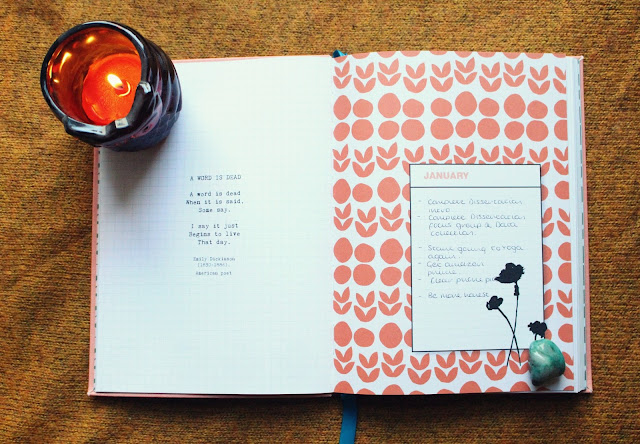 A WORD IS DEAD
A word is dead
When it is said,
Some say.
I say it just
Begins to live
That day.
Emily Dickinson
American poet
JANUARY
- Complete Dissertation
- Complete Dissertation
focus group & Data
collection.
- Start going to yoga
again.
- Get
- Clear
- Be more honest